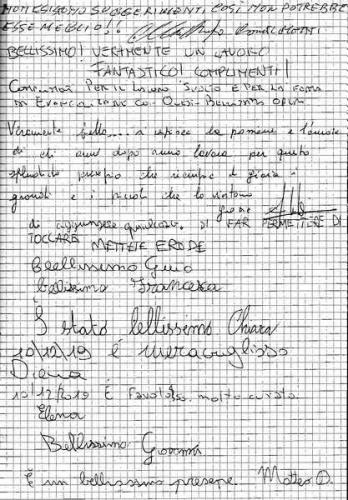 NON ESISTONO SUGGERIMENTI COSÌ NON POTREBBE
ESSE MEGLIO!!
BELLISSIMO! VERAMENTE UN LAVORO
FANTASTICO! COMPLIMENTI!
PER IL LAVORO SVOLTO E PER LA
DI QUESTA BELLISSIMA OPERA
Veramente bello... a capisce la passione e l'amore
di chi anno dopo anno lavora per questo
splendido presepio che riempie di gioia i
grandi e i piccoli che lo visitano
di aggiungere qualcosa. DI FAR PERMETTERE DI
TOCCARE METTETE ERODE
Beellissimo Guio
belissimo Francesca
È stato bellissimo Chiara
10/12/19 é meraviglioso
Diana
10/12/2019 É Favoloso. molto curato
Elena
Bellissimo Giovanni
È un bellissimo presepe. Matteo D.